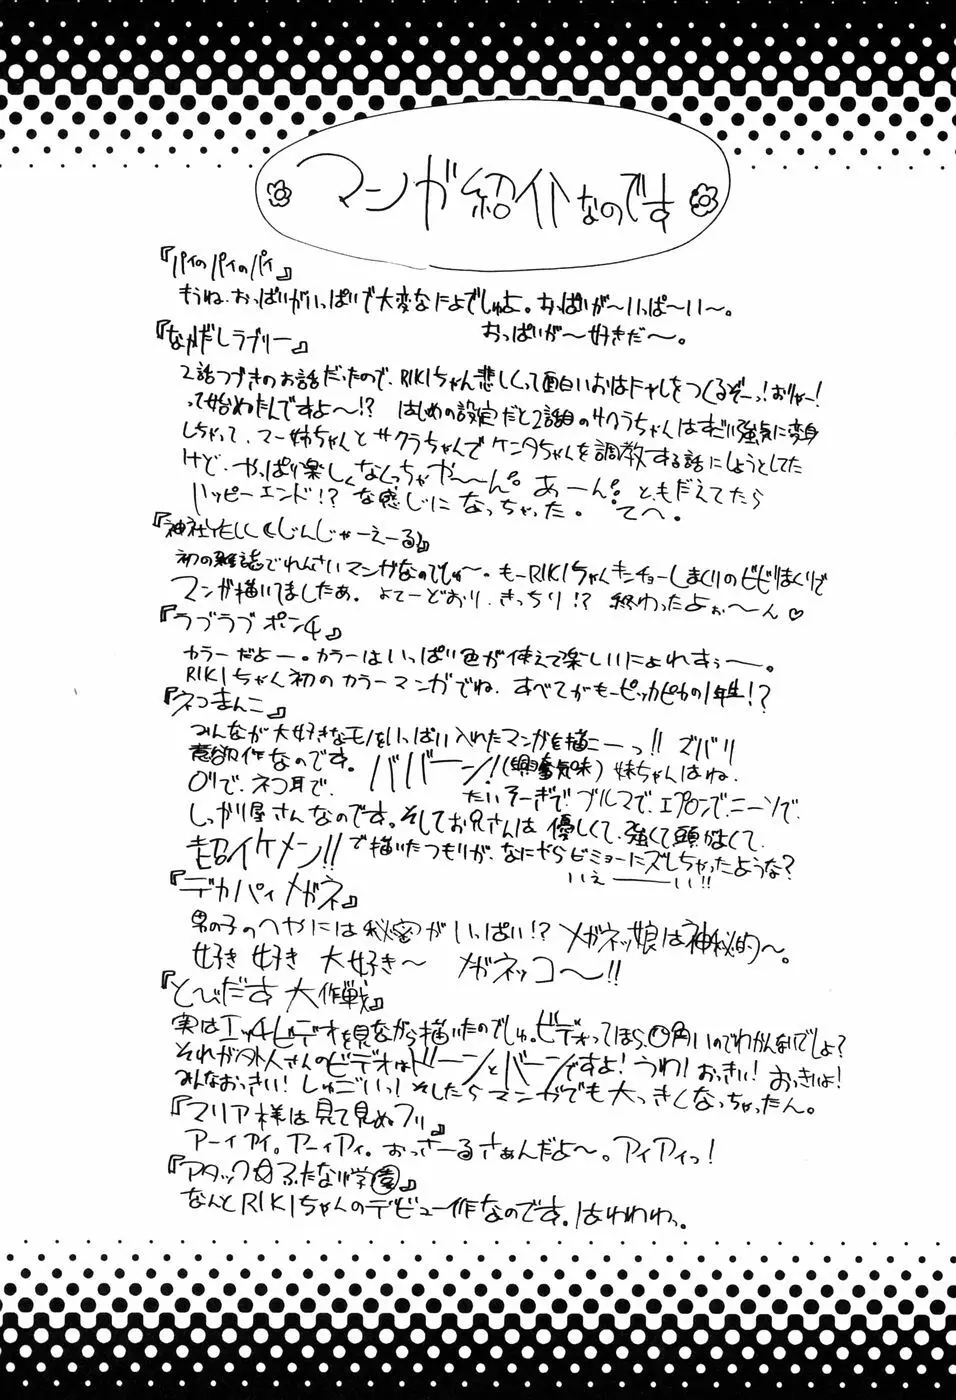 マンガ紹介なのです
『パイのパイのパイ』
もうね、おっぱいがいっぱいで大変なにょでしゅよ。おっぱいが〜いっぱ〜い〜。
おっぱいが〜好きだ〜。
『なかだしラブリー』
2話つづきのお話だったので、RIKIちゃん悲しくって面白いおはなしをつくるぞーっ!おりゃー!
って始めたんですよ〜!? はじめの設定だと2話目のサクラちゃんはすごい強気に変身
しちゃって、マー姉ちゃんとサクラちゃんでケンタちゃんを調教する話にしようとしてた
けど、やっぱり楽しくなくっちゃや〜〜ん。あーん。ともだえてたら
ハッピーエンド!? な感じになっちゃった。てへ。
初の雑誌でれんさいマンガなのでしゅ〜。もーRIKIちゃんキンチョーしまくりのビビりまくりで
マンガ描いてましたぁ。よてーどおり、きっちり!? 終わったよぉ〜ん♡
『ラブラブポンチ』
カラーだよー。カラーはいっぱい色が使えて楽しいにょれすぅー。
RIKIちゃん初のカラーマンガでね、すべてがもーピッカピカの1年生!?
『ネコまんこ』
みんなが大好きなモノをいっぱい入れたマンガを描こーっ!! ズバリ
意欲作なのです。ババーン!(興奮気味) 妹ちゃんはね、
ロリで、ネコ耳で、たいそーぎで、ブルマで、エプロンで、ニーソで、
しっかり屋さんなのです。そしてお兄さんは優しくて、強くて頭がよくて、
超イケメン!!で描いたつもりが、なにやらビミョーにズレちゃったような?
いぇーーい!!
『デカパイメガネ』
男の子のへやには秘密がいっぱい!? メガネッ娘は神秘的〜。
好き 好き 大好き〜 メガネッコ〜!!
『とびだす大作戦』
実はエッチビデオを見ながら描いたのでしゅ。ビデオってほら、四角いのでわかんないでしょ?
それが外人さんのビデオはドーンとバーンですよ!うわ!おっきい!おっきぃよ!
みんなおっきい!しゅごいっ!そしたらマンガでも大っきくなっちゃったん。
『マリア様は見て見ぬフリ』
アーイアイ。アーイアイ。おっさーるさぁんだよ〜。アイアイっ!
『アタック☆ふたなり学園』
なんとRIKIちゃんのデビュー作なのです。はわわわっ。